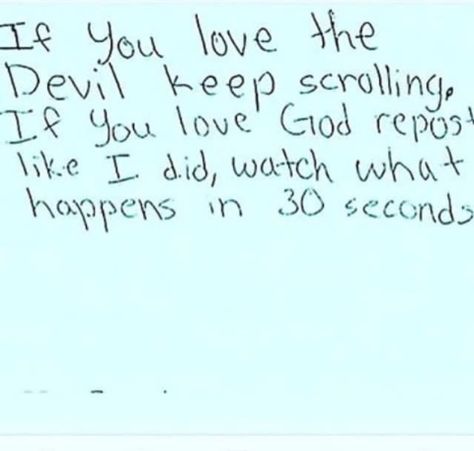 If you love the
Devil keep scrolling.
If you love God repost
like I did, watch what
happens in 30 seconds